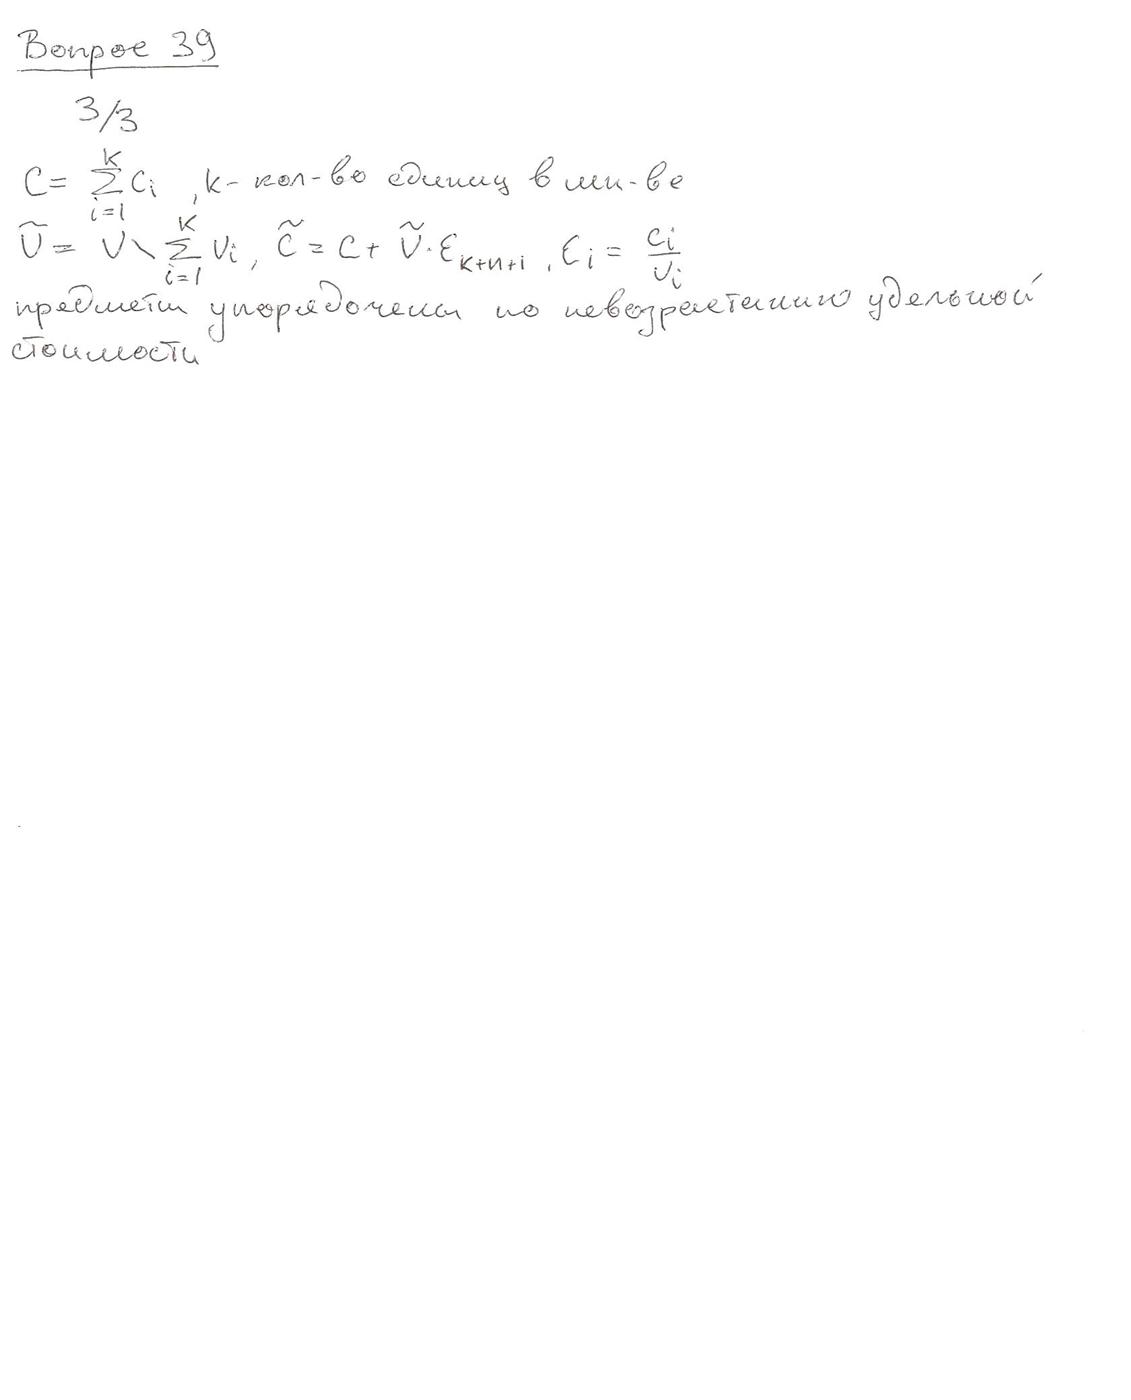 Вопрос 39
3/3
C = \sum_{i=1}^{K} c_i , k - кол-во единиц в мн-ве
\tilde{V} = V \ \sum_{i=1}^{K} v_i , \tilde{C} = C + \tilde{V} · ε_{k+n+i} , ε_i = \frac{c_i}{v_i}
предметы упорядочены по невозрастанию удельной
стоимости